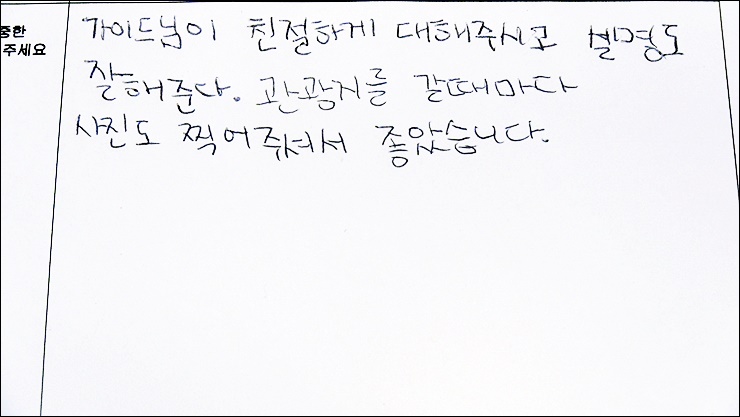 중한
주세요
가이드님이 친절하게 대해주시고 설명도
잘해준다. 관광지를 갈때마다
사진도 찍어주셔서 좋았습니다.